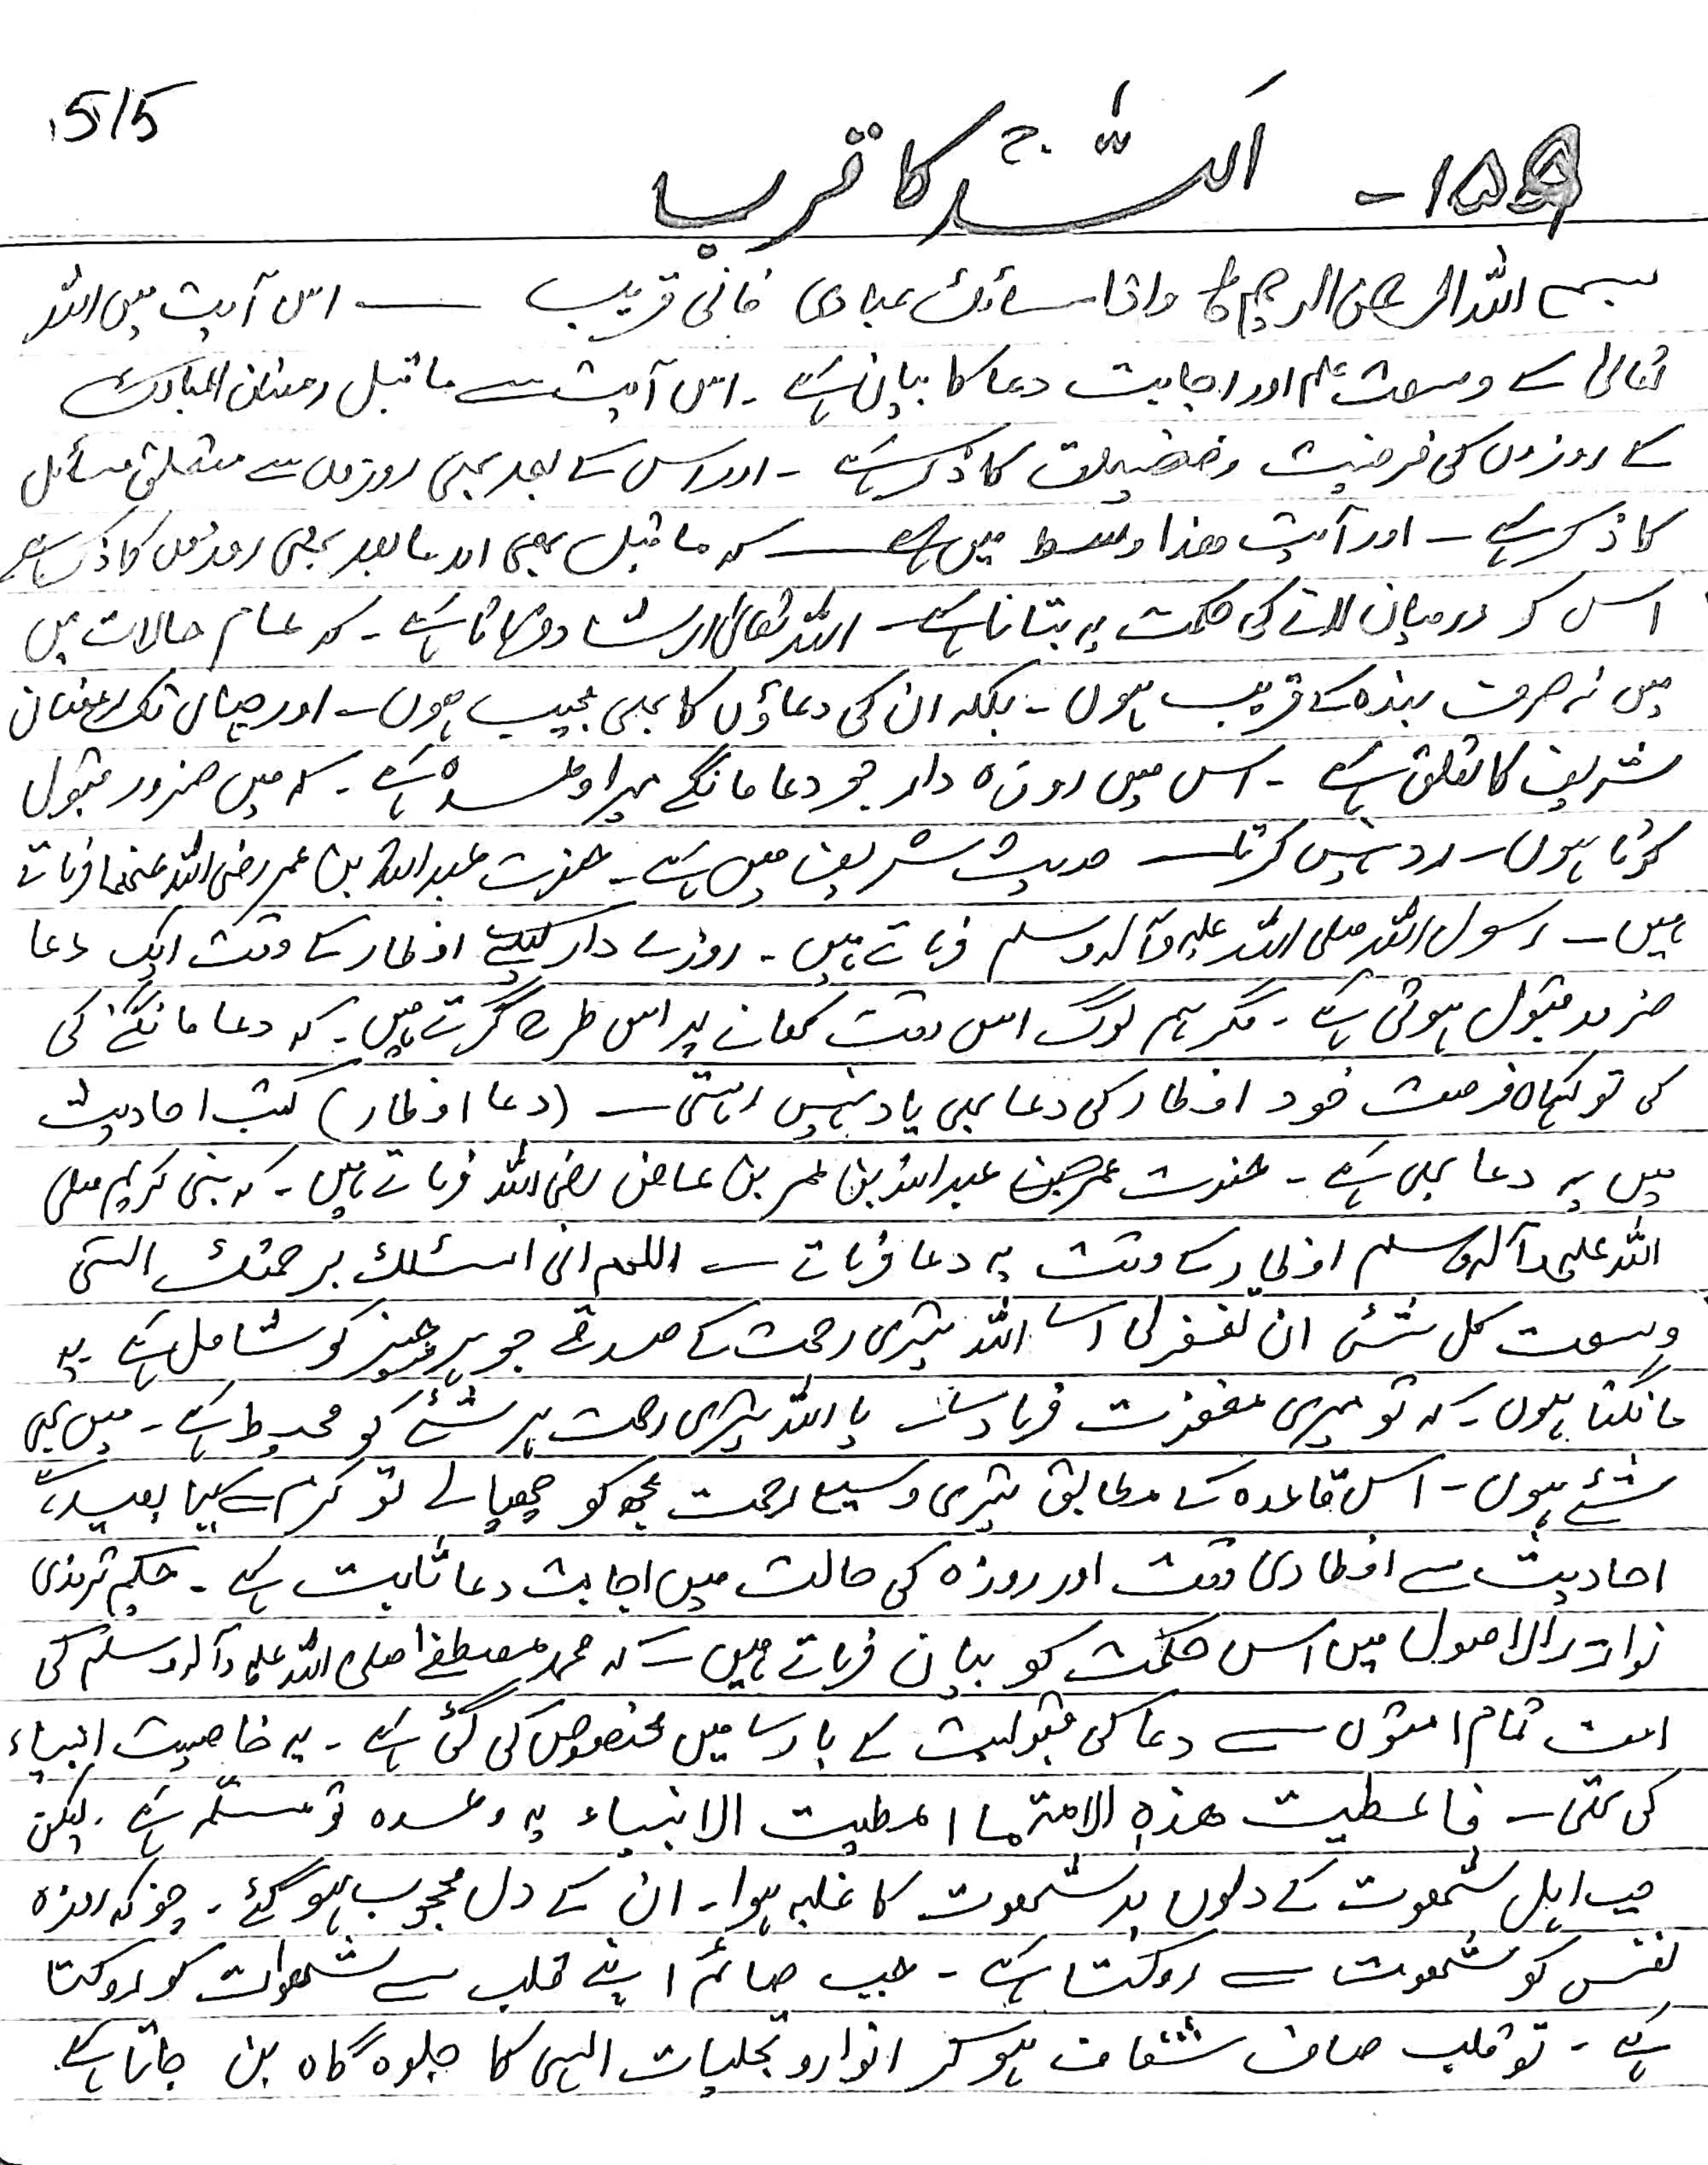 515
۱۵۹- اللہ کا قرب
بسم اللہ الرحمن الرحیم ط واذا سألک عبادی فانی قریب — اس آیت میں اللہ
تعالیٰ کے وسعت علم اور اجابت دعا کا بیان ہے - اس آیت سے ماقبل رمضان المبارک
کے روزوں کی فرضیت وفضیلت کا ذکر ہے - اور اس کے بعد بھی روزوں سے متعلق مسائل
کا ذکر ہے - اور آیت ھذا وسط میں ہے — کہ ماقبل بھی اور مابعد بھی روزوں کا ذکر ہے
اس کو درمیان لانے کی حکمت یہ بتانا ہے - اللہ تعالیٰ ارشاد فرماتا ہے - کہ عام حالات میں
میں نہ صرف بندہ کے قریب ہوں - بلکہ ان کی دعاؤں کا بھی مجیب ہوں - اور جہاں تک رمضان
شریف کا تعلق ہے - اس میں روزہ دار جو دعا مانگے میرا وعدہ ہے - کہ میں ضرور قبول
کرتا ہوں - رد نہیں کرتا — حدیث شریف میں ہے - حضرت عبداللہ بن عمر رضی اللہ عنھما فرماتے
ہیں - رسول اللہ صلی اللہ علیہ وآلہ وسلم فرماتے ہیں - روزے دار کیلئے افطار کے وقت ایک دعا
ضرور قبول ہوتی ہے - مگر ہم لوگ اس وقت کھانے پر اس طرح گرتے ہیں - کہ دعا مانگنے کی
کی تو کہاں فرصت خود افطار کی دعا بھی یاد نہیں رہتی - (دعا افطار) کتب احادیث
میں یہ دعا بھی ہے - حضرت عبداللہ بن عمر بن عاص رضی اللہ فرماتے ہیں - کہ نبی کریم صلی
اللہ علیہ وآلہ وسلم افطار کے وقت یہ دعا فرماتے - اللھم انی اسئلک برحمتک التی
وسعت کل شئی ان تغفرلی اے اللہ تیری رحمت کے صدقے جو ہر چیز کو شامل ہے یہ
مانگتا ہوں - کہ تو میری مغفرت فرما دے یا اللہ تیری رحمت ہر شئے کو محیط ہے - میں بھی
شئے ہوں - اس قاعدہ کے مطابق تیری وسیع رحمت مجھ کو چھپا لے تو کرم سے کیا بعید ہے
احادیث سے افطاری وقت اور روزہ کی حالت میں اجابت دعا ثابت ہے - حکیم ترمذی
نوادر الاصول میں اس حکمت کو بیان فرماتے ہیں - کہ محمد مصطفےٰ صلی اللہ علیہ وآلہ وسلم کی
امت تمام امتوں سے دعا کی قبولیت کے بارے میں مخصوص کی گئی ہے - یہ خاصیت انبیاء
کی تھی - فاعطیت ھذہ الامۃ ما اعطیت الانبیاء یہ وعدہ تو مسلّمہ ہے - لیکن
جب اہل شھوت کے دلوں پر شھوت کا غلبہ ہوا - ان کے دل محجوب ہو گئے - چونکہ روزہ
نفس کو شھوت سے روکتا ہے - جب صائم اپنے قلب سے شھوات کو روکتا
ہے - تو قلب صاف شفاف ہو کر انوار و تجلیات الہی کا جلوہ گاہ بن جاتا ہے